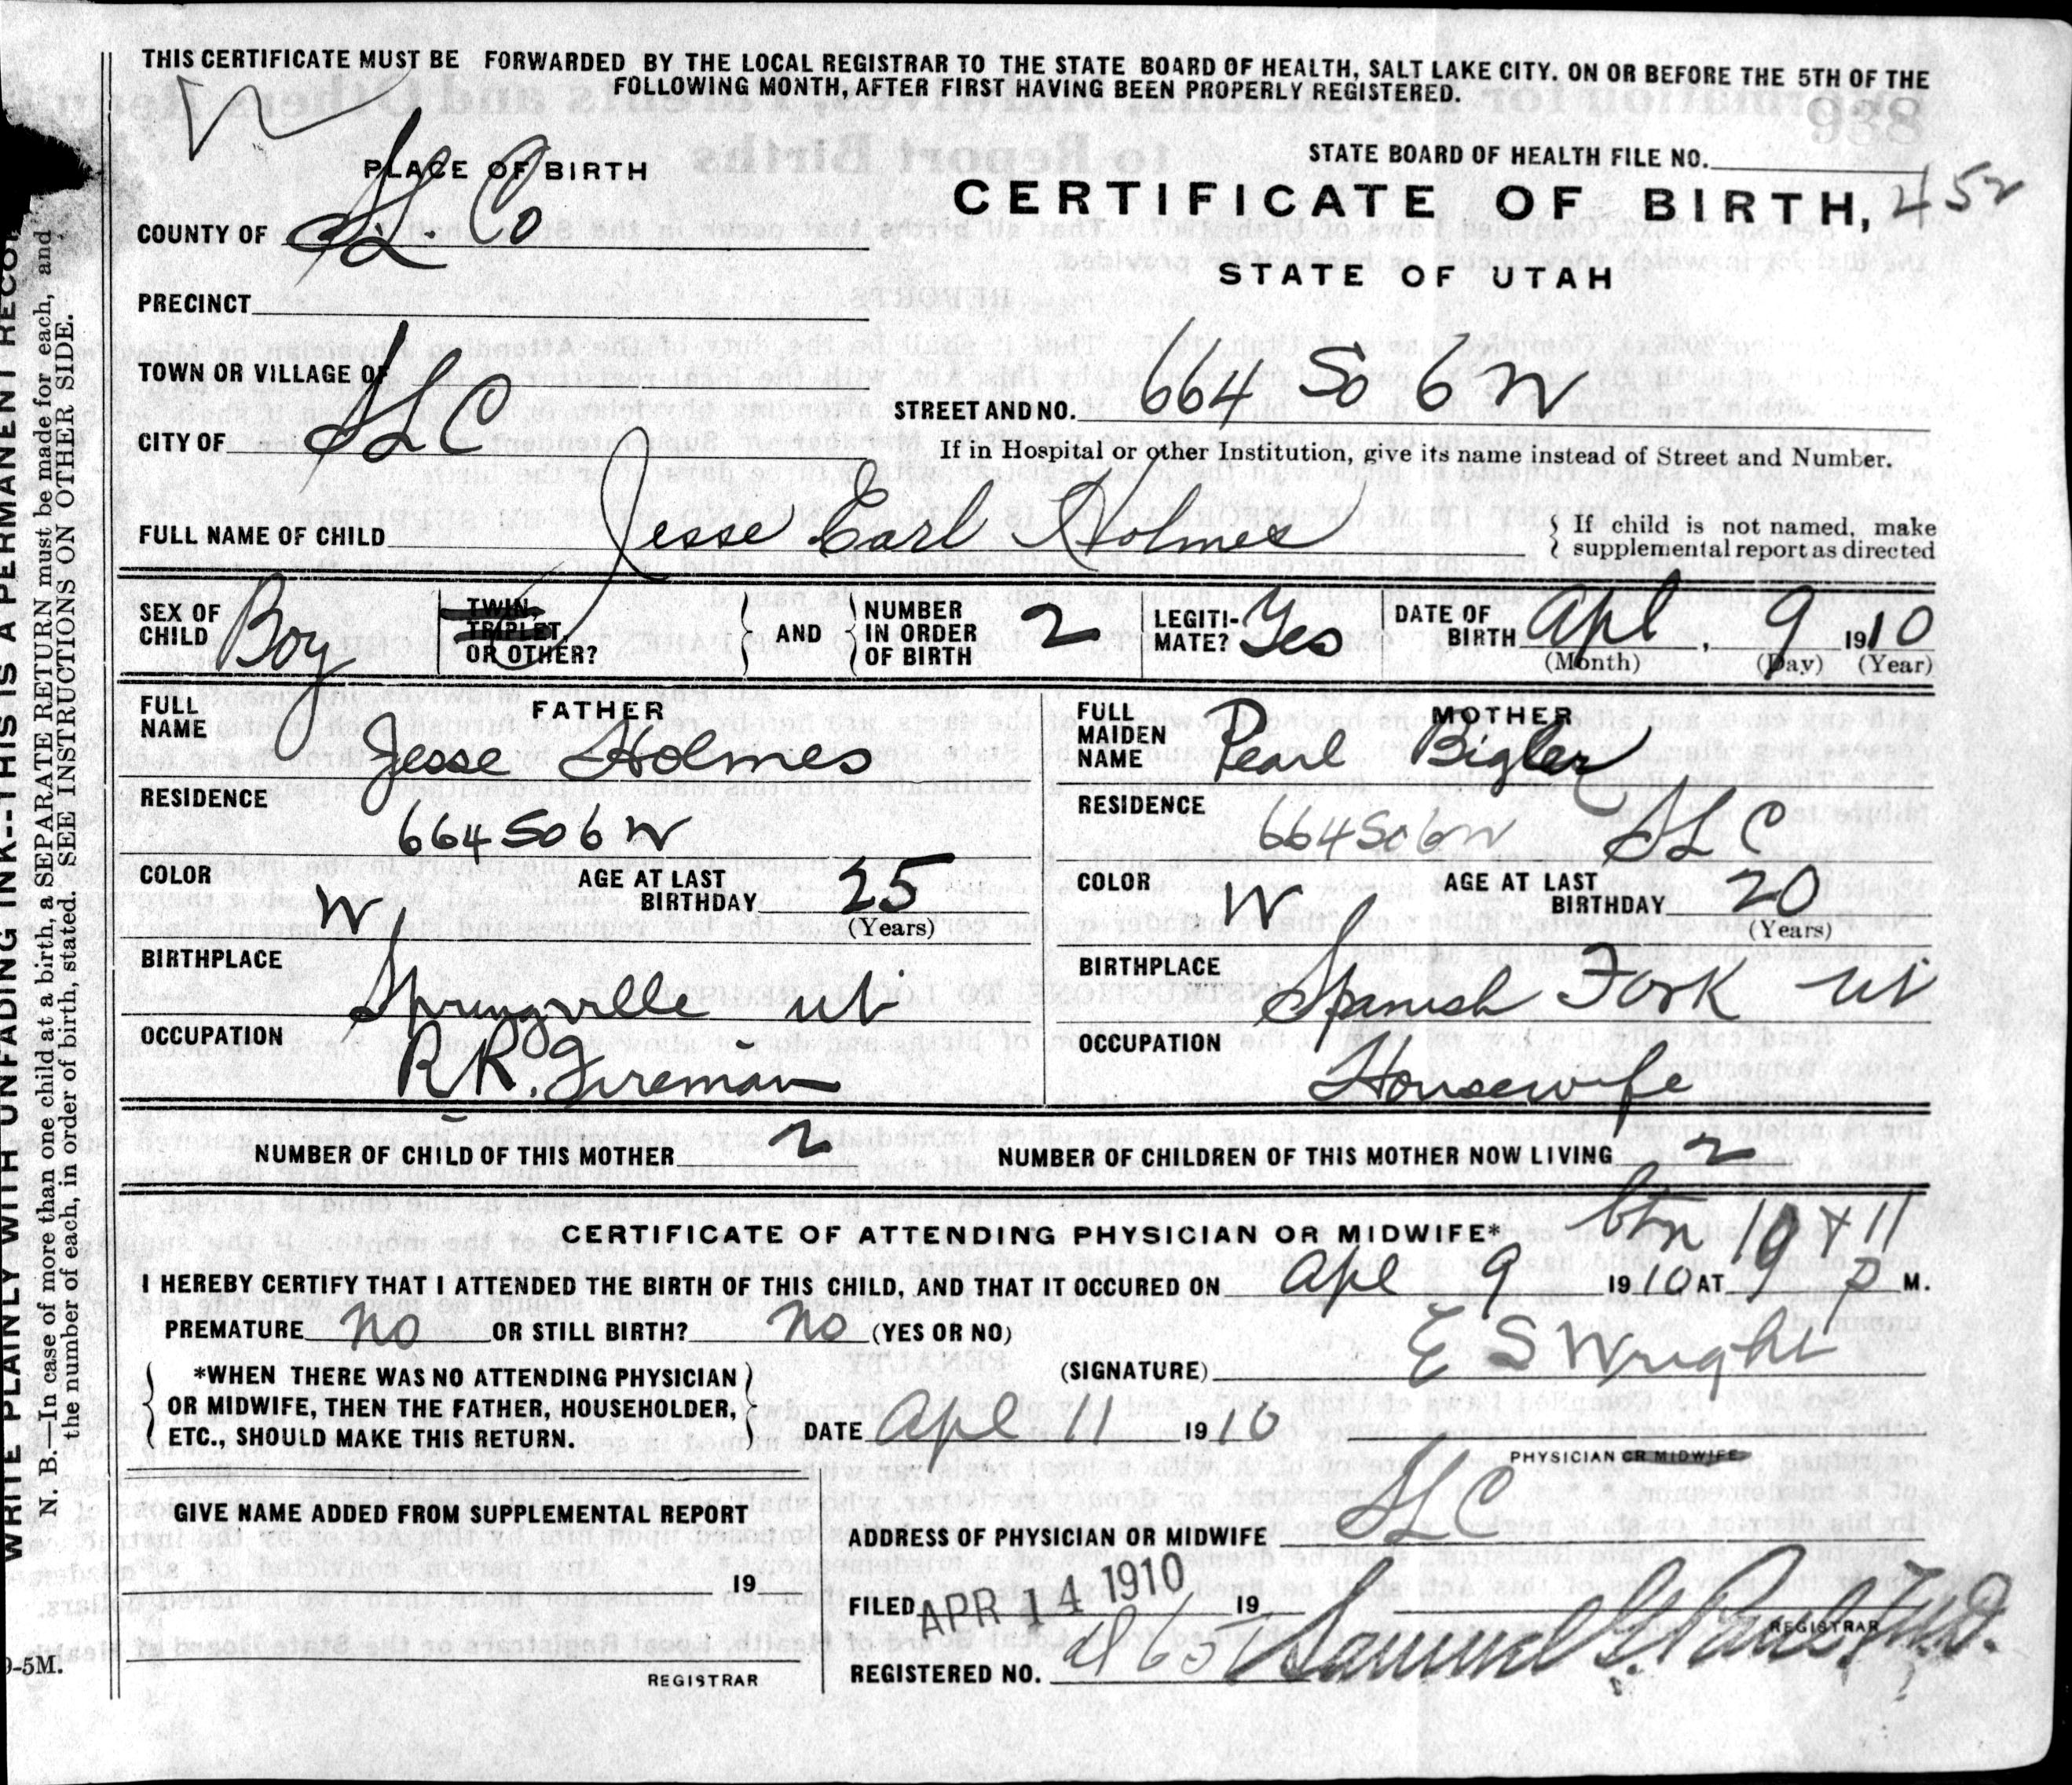 THIS CERTIFICATE MUST BE FORWARDED BY THE LOCAL REGISTRAR TO THE STATE BOARD OF HEALTH, SALT LAKE CITY. ON OR BEFORE THE 5TH OF THE
FOLLOWING MONTH, AFTER FIRST HAVING BEEN PROPERLY REGISTERED.
938
STATE BOARD OF HEALTH FILE NO.
PLACE OF BIRTH
CERTIFICATE OF BIRTH, 452
COUNTY OF S.L. Co
STATE OF UTAH
PRECINCT
TOWN OR VILLAGE OF
STREET AND NO. 664 So 6 W
CITY OF SLC
If in Hospital or other Institution, give its name instead of Street and Number.
FULL NAME OF CHILD Jesse Earl Holmes
{ If child is not named, make
supplemental report as directed
SEX OF CHILD Boy
TWIN, TRIPLET, OR OTHER?
AND
NUMBER IN ORDER OF BIRTH 2
LEGITIMATE? Yes
DATE OF BIRTH Apl, 9 1910
(Month) (Day) (Year)
FATHER
FULL NAME Jesse Holmes
RESIDENCE 664 So 6 W
COLOR W
AGE AT LAST BIRTHDAY 25
(Years)
BIRTHPLACE Springville Ut
OCCUPATION R.R. Fireman
MOTHER
FULL MAIDEN NAME Pearl Bigler
RESIDENCE 664 So 6 W SLC
COLOR W
AGE AT LAST BIRTHDAY 20
(Years)
BIRTHPLACE Spanish Fork Ut
OCCUPATION Housewife
NUMBER OF CHILD OF THIS MOTHER 2
NUMBER OF CHILDREN OF THIS MOTHER NOW LIVING 2
CERTIFICATE OF ATTENDING PHYSICIAN OR MIDWIFE*
btn 10 + 11
I HEREBY CERTIFY THAT I ATTENDED THE BIRTH OF THIS CHILD, AND THAT IT OCCURED ON Apl 9 1910 AT 9 P M.
PREMATURE No OR STILL BIRTH? No (YES OR NO)
*WHEN THERE WAS NO ATTENDING PHYSICIAN
OR MIDWIFE, THEN THE FATHER, HOUSEHOLDER,
ETC., SHOULD MAKE THIS RETURN.
(SIGNATURE) E S Wright
DATE Apl 11 1910
PHYSICIAN OR MIDWIFE
GIVE NAME ADDED FROM SUPPLEMENTAL REPORT
19
REGISTRAR
ADDRESS OF PHYSICIAN OR MIDWIFE SLC
FILED APR 14 1910 19
REGISTRAR
REGISTERED NO.
Samuel G. Paul M.D.
WRITE PLAINLY WITH UNFADING INK--THIS IS A PERMANENT RECOR
N. B.—In case of more than one child at a birth, a SEPARATE RETURN must be made for each, and
the number of each, in order of birth, stated. SEE INSTRUCTIONS ON OTHER SIDE.
-5M.